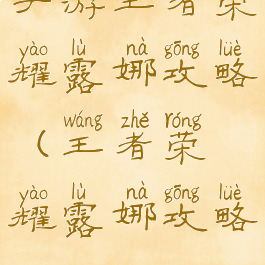 手游王者荣
yào lù nà gōng lüè
耀露娜攻略
wáng zhě róng
(王者荣
yào lù nà gōng lüè
耀露娜攻略